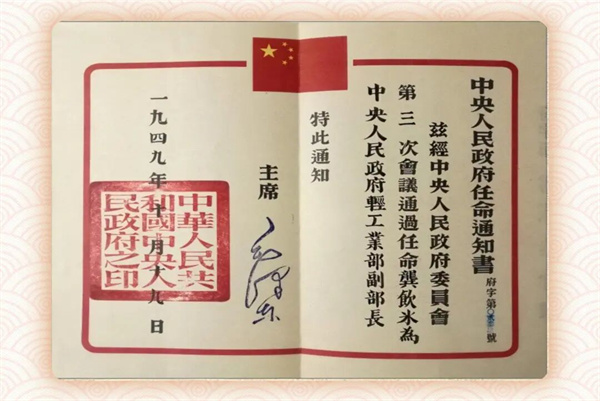 中央人民政府任命通知書
府字第號
茲經中央人民政府委員會
第三次會議通過任命龔飲氷為
中央人民政府輕工業部副部長
特此通知
主席
毛澤東
一九四九年十月十九日
中華人民共
和國中央人
民政府之印